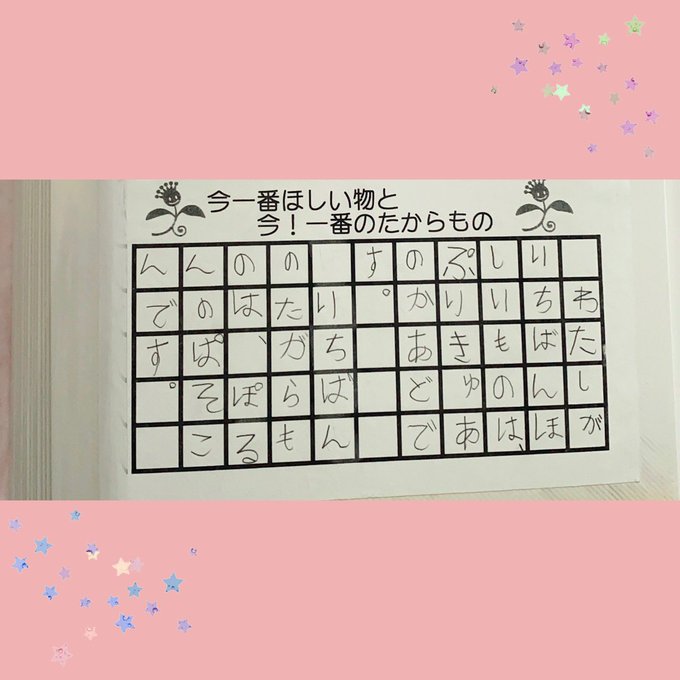 今一番ほしい物と
今！一番のたからもの
わたしが
いちばんほ
しいものは、
ぷりきゅあ
のかあどで
す。
いちばん
のたがらも
のは、ぽる
んのぱそこ
んです。